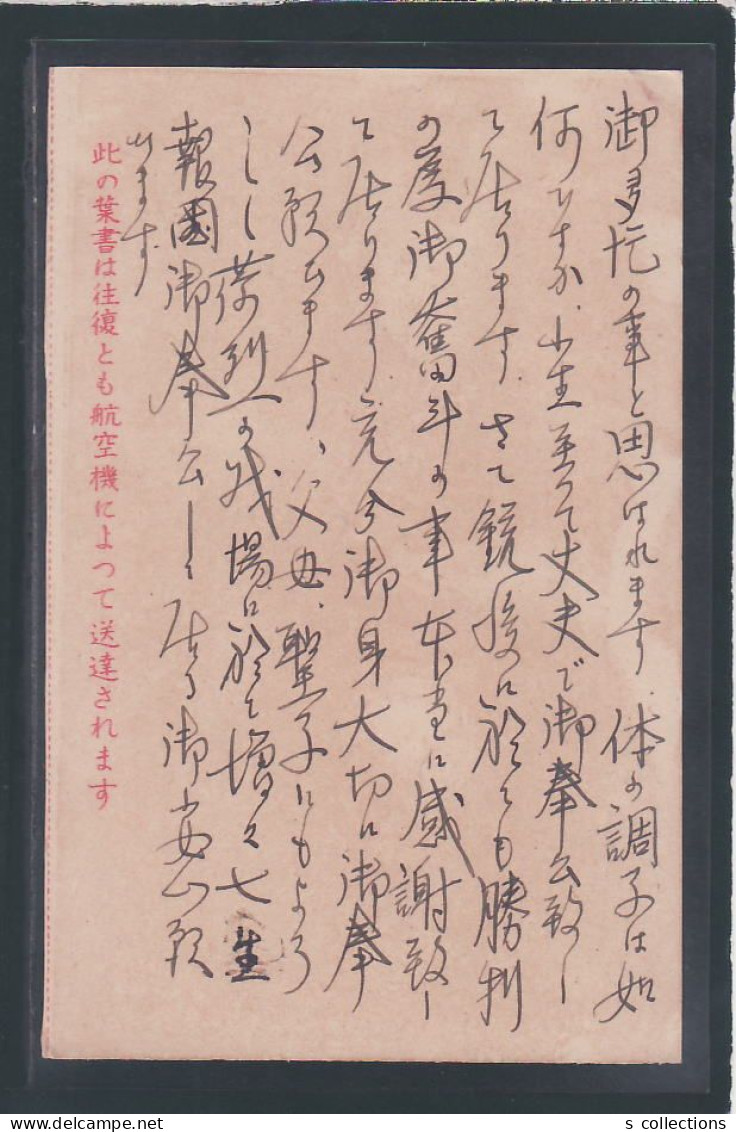 御多忙の事と思はれます、体の調子は如
何ですか、小生至って丈夫で御奉公致し
て居ります。さて銃後に於ても勝利
の度御奮斗の事本当に感謝致し
て居ります充分御身大切に御奉
公願ひます、父母、聖子にもよろ
しく 烈の戦場に於て増々七生
報國御奉公し居る 御安心願
います
此の葉書は往復とも航空機によつて送達されます
s collections